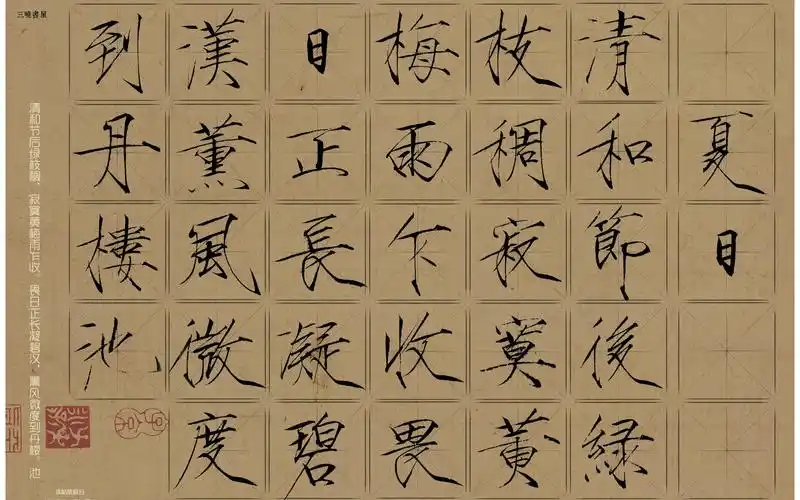 夏日
清和節後緑
枝稠寂寞黃
梅雨乍收畏
日正長凝碧
漢薰風微度
到丹樓池
清和节后绿枝稠、寂寞黄梅雨乍收。畏日正长凝碧汉、薰风微度到丹楼。池